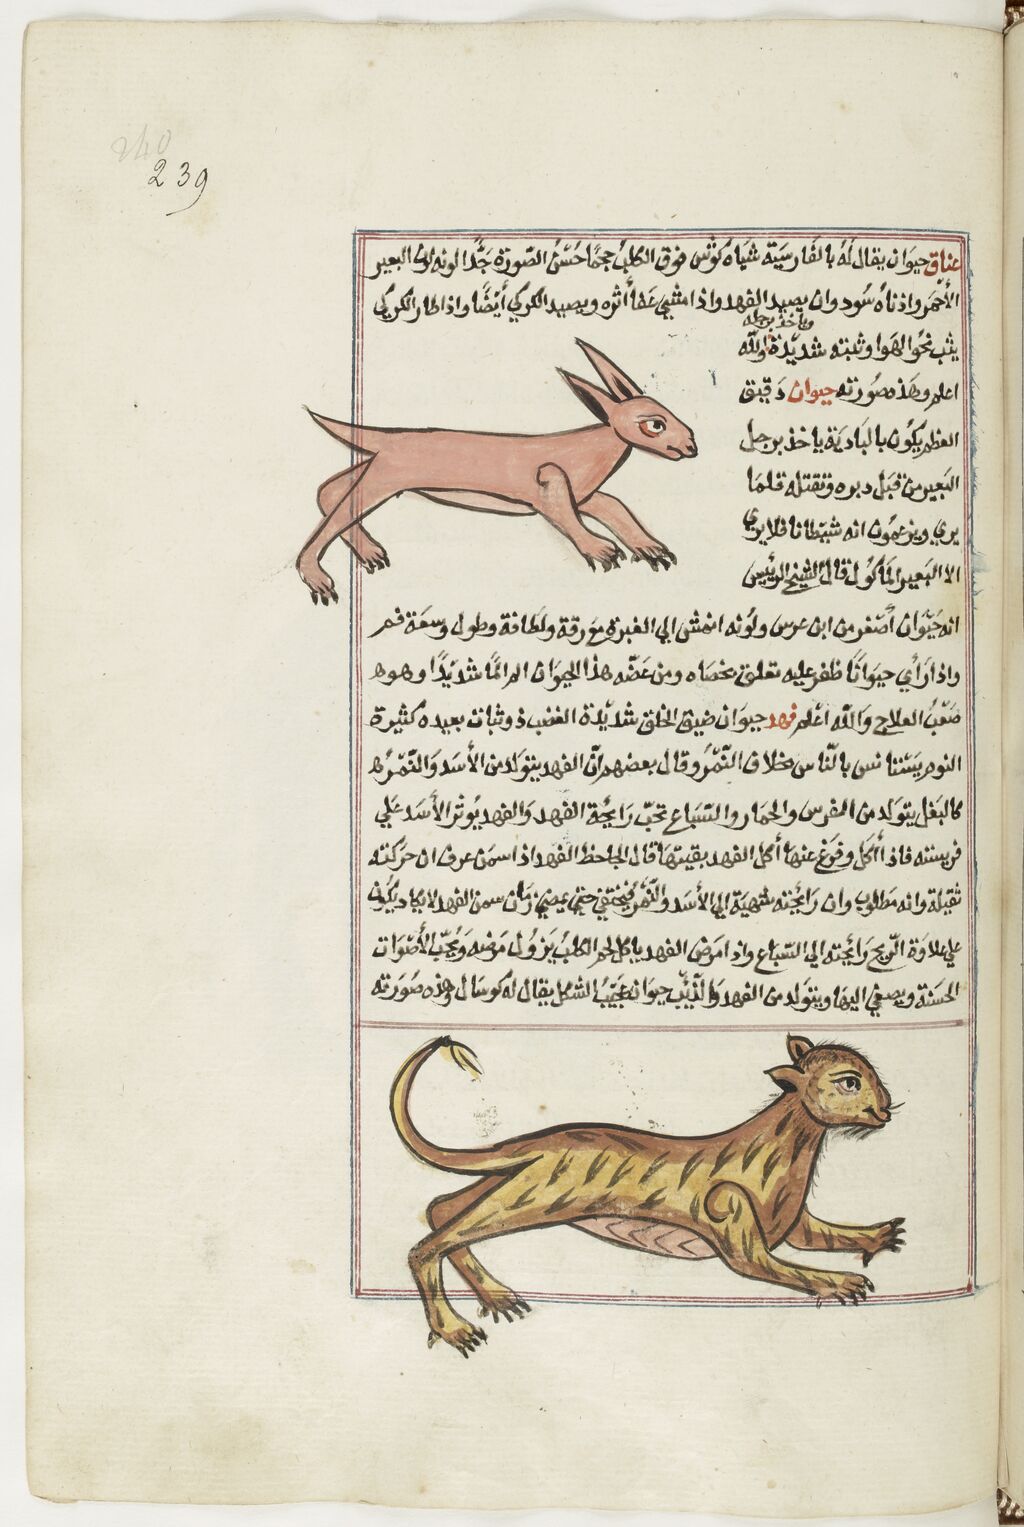 240
239
عناق حيوان يقال له بالفارسية شياه كوش فوق الكلب حجما حسن الصورة جدا لونه لون البعير
الأحمر واذناه سود وان يصيد الفهد واذا مشى عفا أثره ويصيد الكركي أيضا واذا طار الكركي
وياخذ برجله
يثب نحو الهوا وثبته شديدة والله
اعلم وهذه صورته حيوان دقيق
العظم يكون بالبادية ياخذ برجل
البعير من قبل دبره وتقتله قلما
يري ويزعمون انه شيطانا فلا يري
الا البعير الماكول قال الشيخ الرئيس
انه حيوان أصغر من ابن عرس ولونه انمشى الي الغبرة مع رقة ولطافة وطول وسعة فم
واذا رأي حيوانا ظفر عليه تعلق بخصاه ومن عضه هذا الحيوان الم الما شديدا وهو
صعب العلاج والله اعلم فهد حيوان ضيق الخلق شديدة الغضب ذو ثبات بعيده كثيرة
النوم يستانس بالناس بخلاف النمر وقال بعضهم أن الفهد يتولد من الأسد والنمره
كالبغل يتولد من الفرس والحمار والسباع تحب رايحة الفهد والفهد يوثر الأسد علي
فريسته فاذا أكل وفرغ عنها أكل الفهد بقيتها قال الجاحظ الفهد اذا سمن عرف ان حركته
ثقيلة وانه مطلوب وان رايحته شهية الي الأسد والنمر فيختفي حتى يمضي زمان سمن الفهد لا يكاد يكون
علي علاوة الريح رايحته الي السباع واذا مرض الفهد ياكل لحم الكلب يزول مرضه ويحب الأصوات
الحسنة ويصغي اليها ويتولد من الفهد والذيب حيوان عجيب الشكل يقال له كوسال وهذه صورته